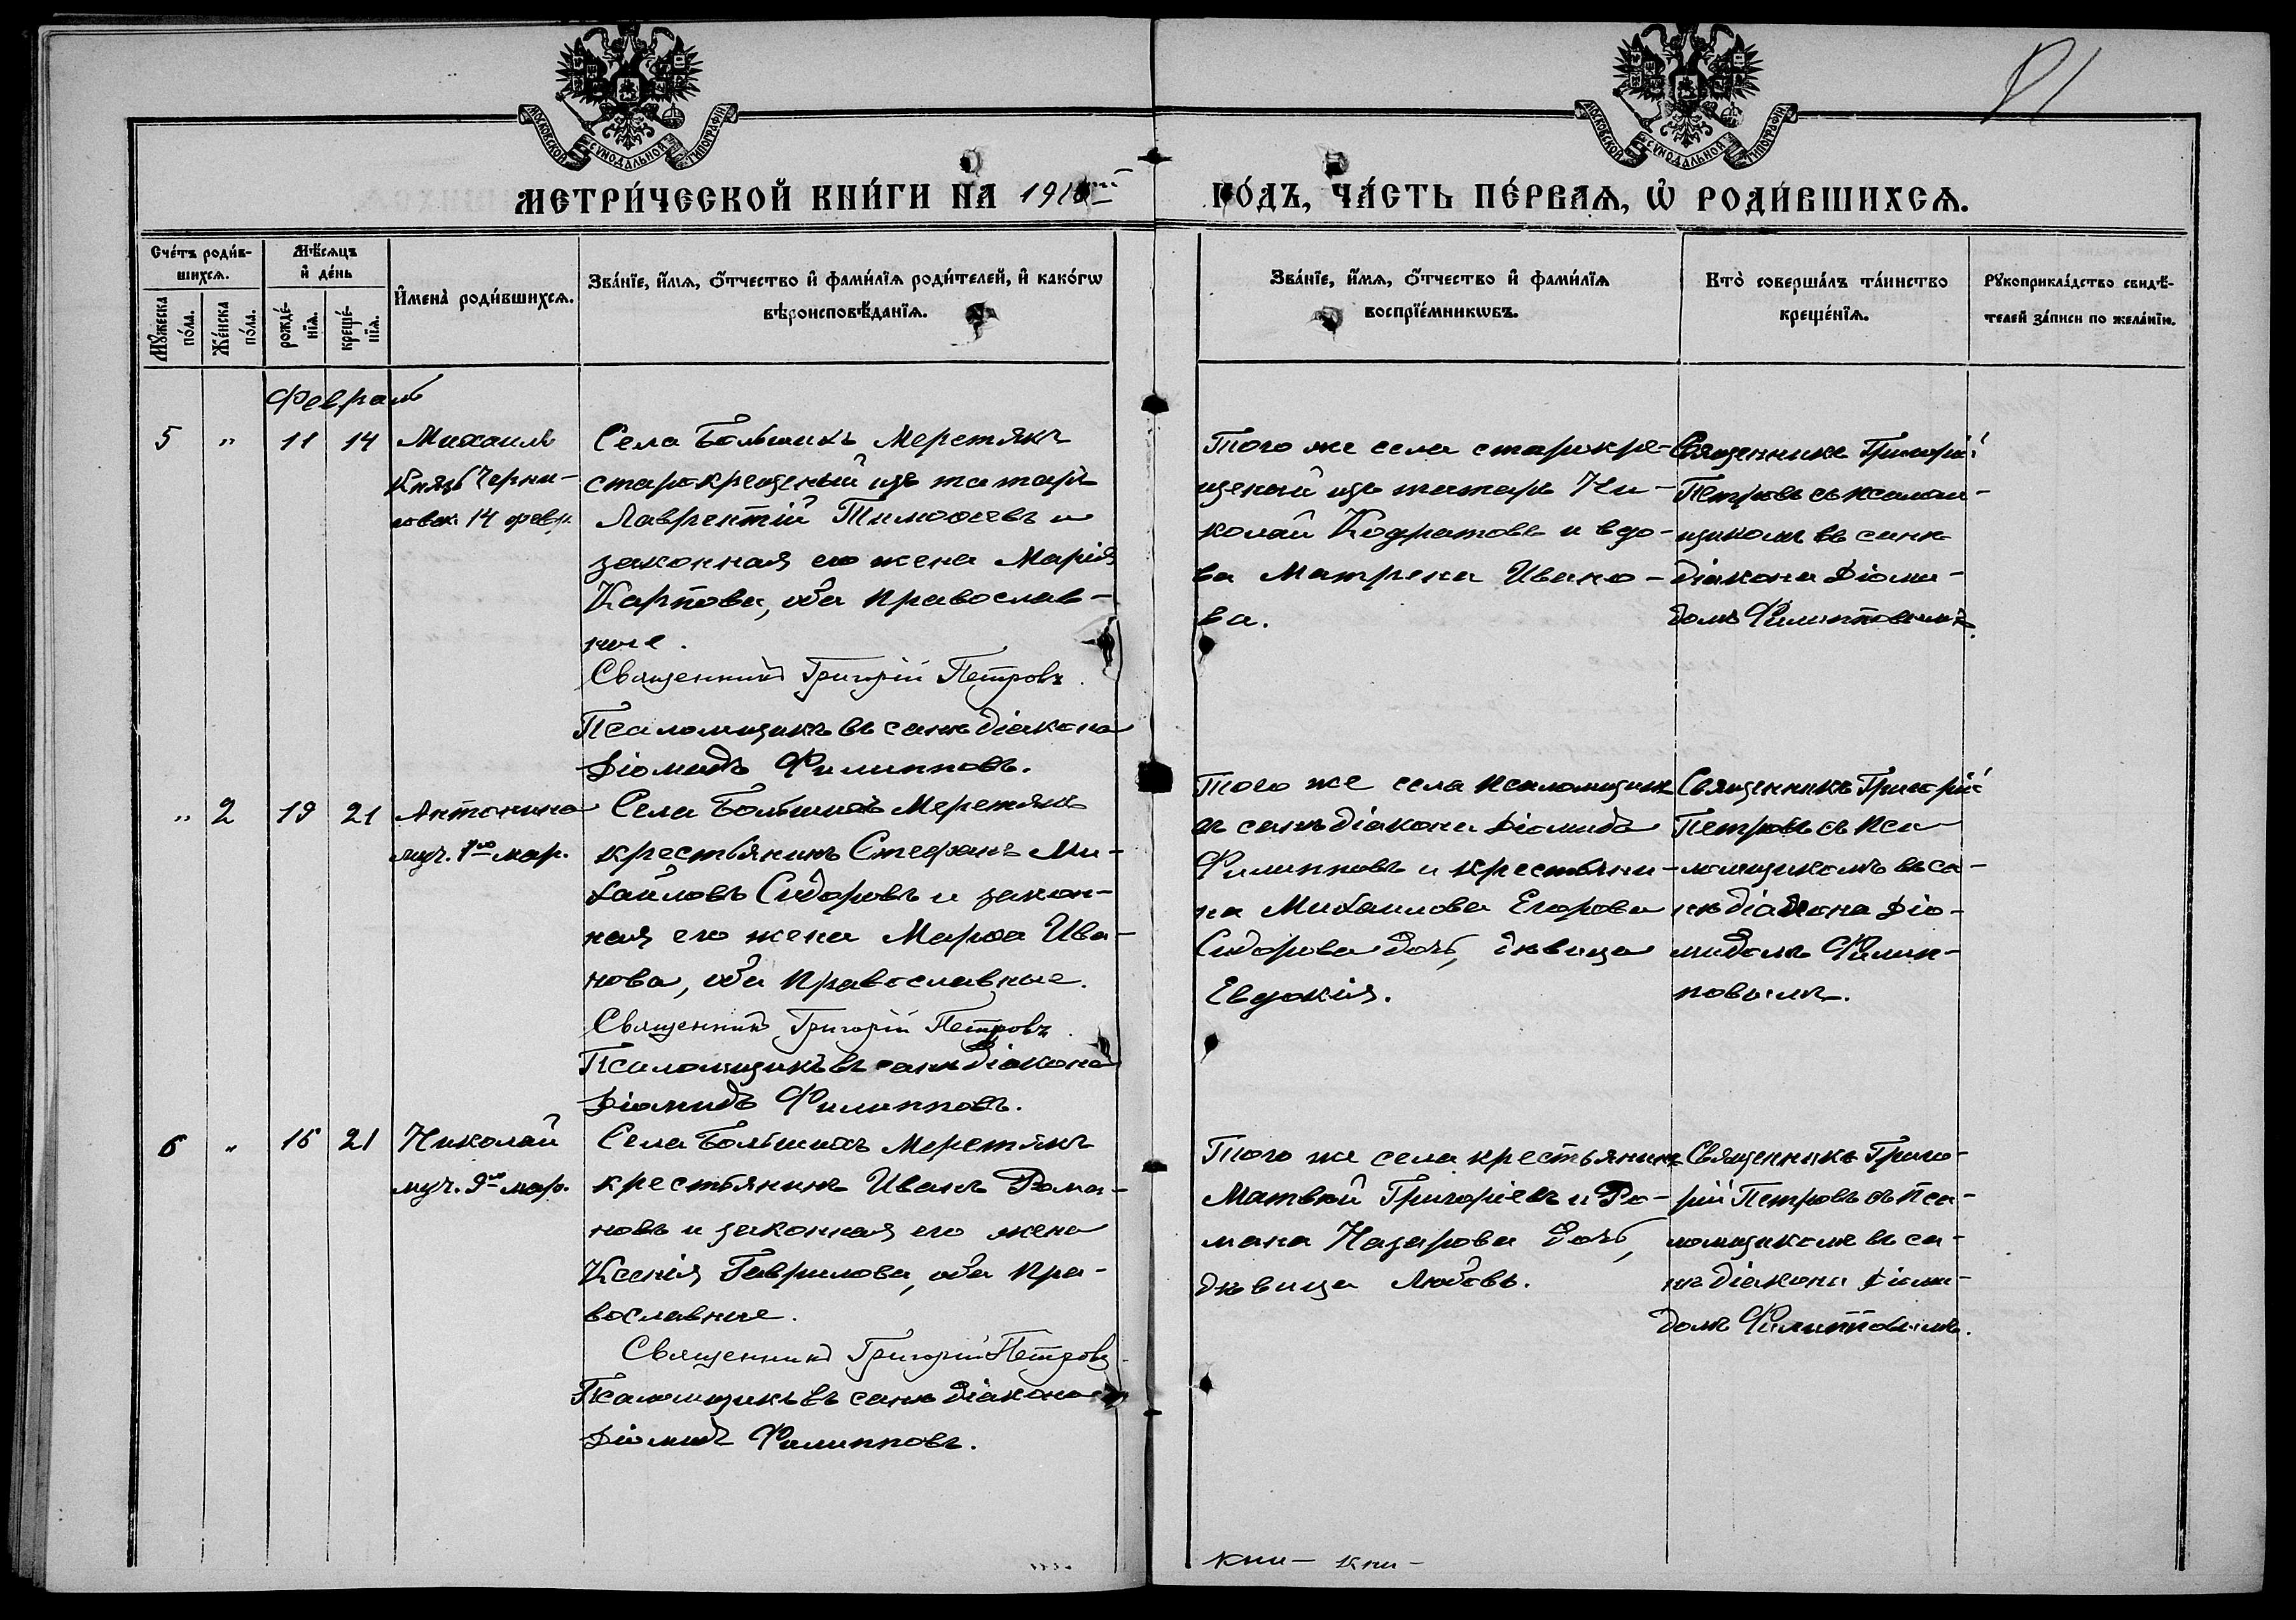 МОСКОВСКОЙ СѴНОДАЛЬНОЙ ТИПОГРАФІИ
МОСКОВСКОЙ СѴНОДАЛЬНОЙ ТИПОГРАФІИ
МЕТРИ́ЧЕСКОЙ КНИ́ГИ НА 1916 ГО́ДЪ, ЧА́СТЬ ПЕ́РВАѦ, Ѡ҆ РОДИ́ВШИХСѦ.
Сче́тъ роди́в-
шихсѧ.
Мꙋ́жеска по́ла.
Же́нска по́ла.
Мѣ́сѧцъ
и҆ де́нь
рожде́-
нїѧ.
креще́-
нїѧ.
И҆мена̀ роди́вшихсѧ.
Зва́нїе, и҆́мѧ, ѻ҆́тчество и҆ фами́лїѧ роди́телей, и҆ како́гѡ
вѣроисповѣ́данїѧ.
Зва́нїе, и҆́мѧ, ѻ҆́тчество и҆ фами́лїѧ
воспрїе́мникѡвъ.
Кто̀ соверша́лъ та́инство
креще́нїѧ.
Рꙋкоприкла́дство свидѣ́-
телей за́писи по жела́нїю.
Февраль
5 " 11 14
Михаилъ
Князь Черни-
говск. 14 февр.
Села Большихъ Меретякъ
старокрещеный изъ татаръ
Лаврентій Тимоѳеевъ и
законная его жена Марія
Карпова, оба православ-
ные.
Священникъ Григорій Петровъ.
Псаломщикъ въ санѣ діакона
Діомидъ Филипповъ.
Того же села старокре-
щеный изъ татаръ Ни-
колай Кодратовъ и вдо-
ва Матрена Ивано-
ва.
Священникъ Григорій
Петровъ съ псалом-
щикомъ въ санѣ
діакона Діоми-
домъ Филипповымъ.
" 2 19 21
Антонина
муч. 1го мар.
Села Большихъ Меретякъ
крестьянинъ Стефанъ Ми-
хайловъ Сидоровъ и закон-
ная его жена Марѳа Ива-
нова, оба православные.
Священникъ Григорій Петровъ.
Псаломщикъ въ санѣ діакона
Діомидъ Филипповъ.
Того же села псаломщик
въ санѣ діакона Діомидъ
Филипповъ и крестьяни-
на Михаилова Егорова
Сидорова дочь, дѣвица
Евдокія.
Священникъ Григорій
Петровъ съ пса-
ломщикомъ въ са-
нѣ діакона Діо-
мидомъ Филип-
повымъ.
6 " 15 21
Николай
муч. 9го мар.
Села Большихъ Меретякъ
крестьянинъ Иванъ Рома-
новъ и законная его жена
Ксенія Гаврилова, оба пра-
вославные.
Священникъ Григорій Петровъ
Псаломщикъ въ санѣ діакона
Діомидъ Филипповъ.
Того же села крестьянинъ
Матвѣй Григорьевъ и Ро-
мана Назарова дочь,
дѣвица Любовь.
Священникъ Григо-
рій Петровъ съ пса-
ломщикомъ въ са-
нѣ діакона Діоми-
домъ Филипповымъ.
кни- кни-